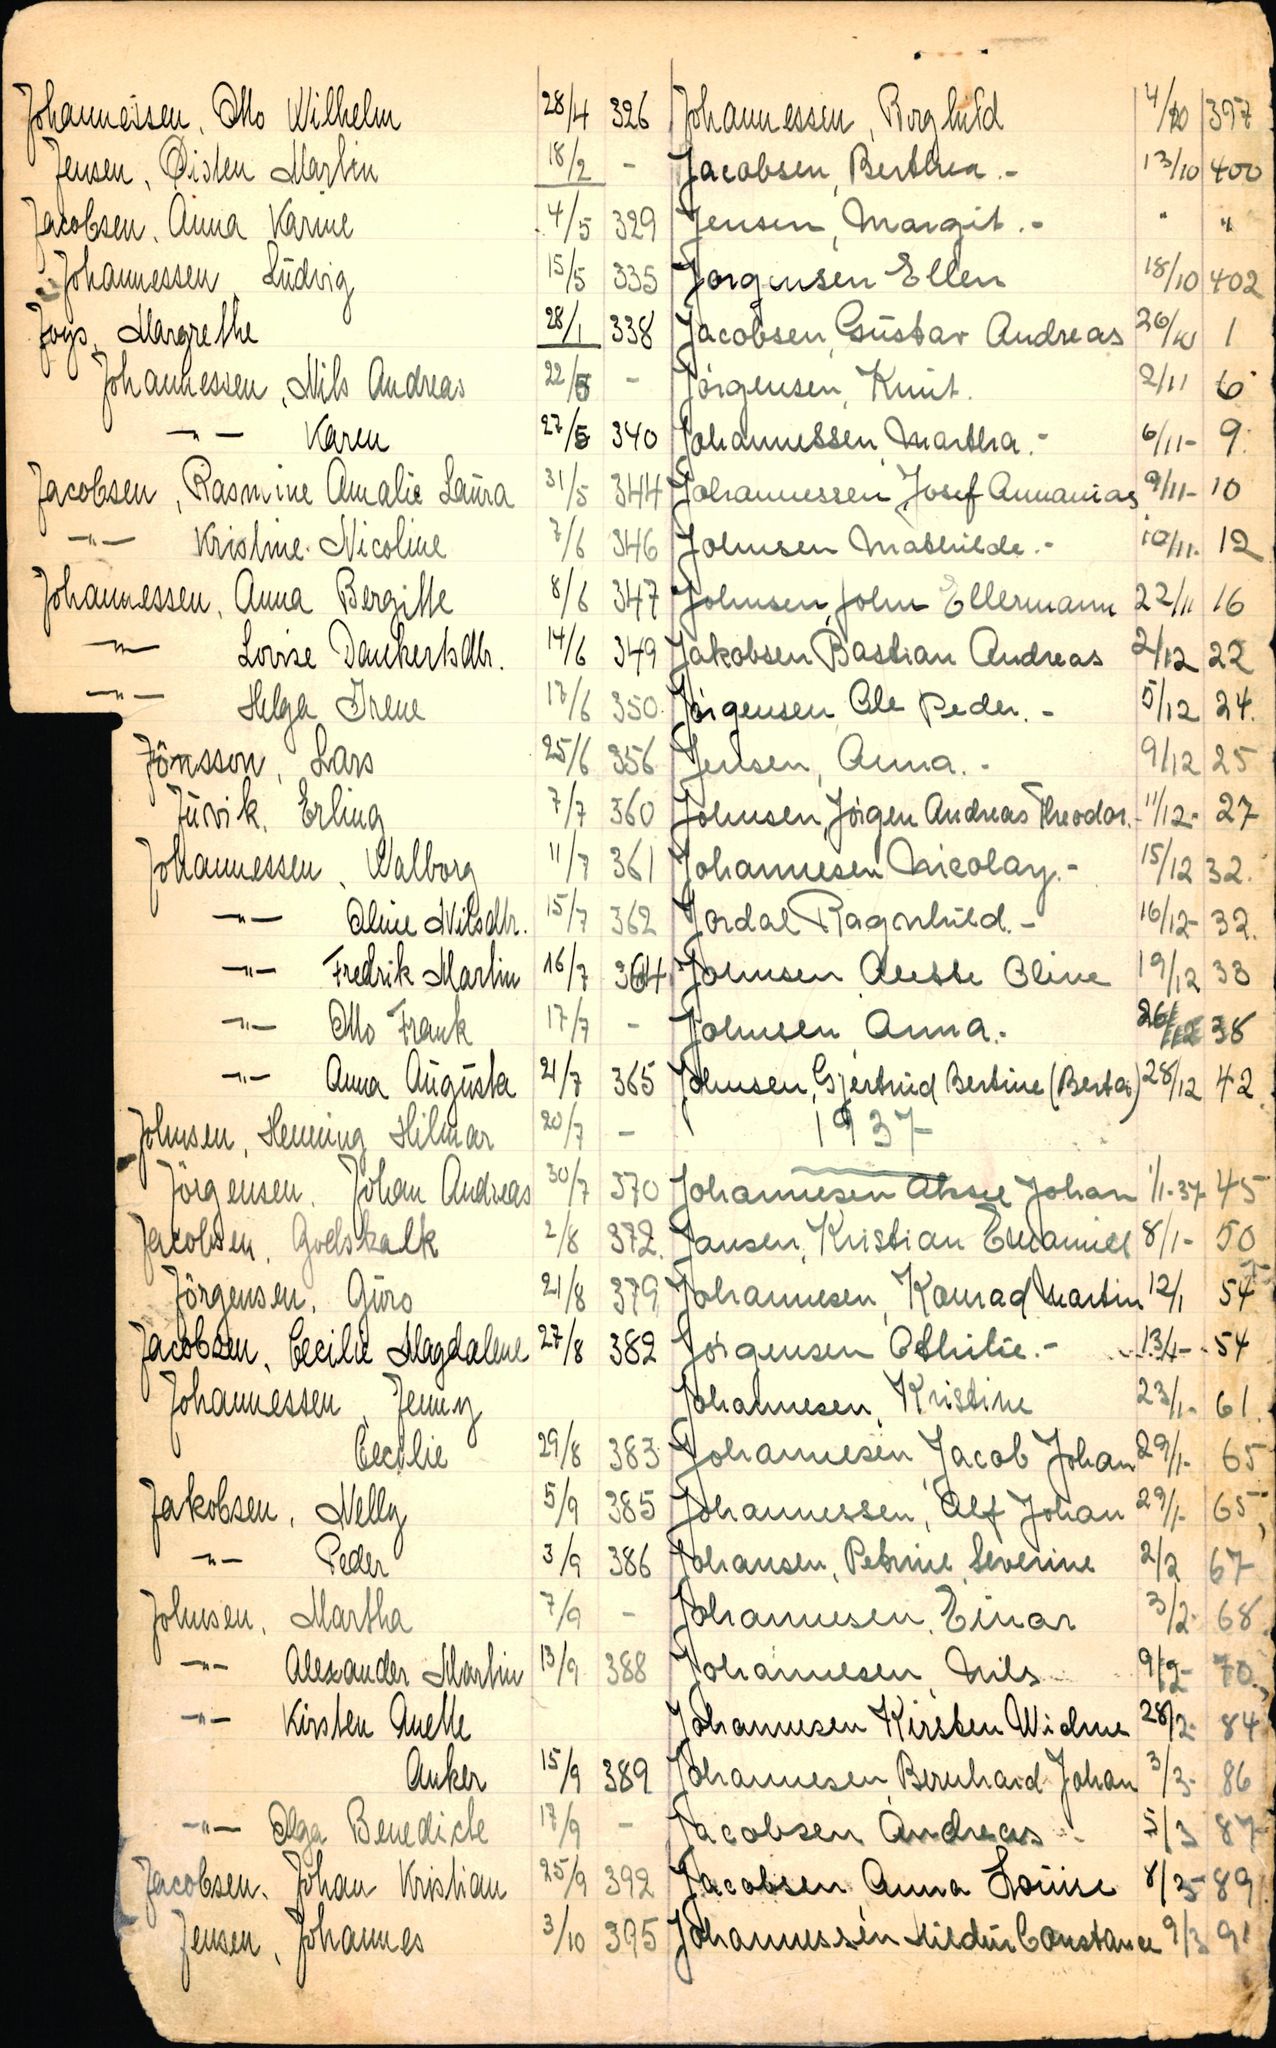 Johannessen, Otto Wilhelm 28/4 326
Jensen, Øisten Martin 18/2 -
Jacobsen, Anna Karine 4/5 329
Johannessen, Ludvig 15/5 335
Joys, Margrethe 28/1 338
Johannessen, Nils Andreas 22/5 -
-"- Karen 27/5 340
Jacobsen, Rasmine Amalie Laura 31/5 344
-"- Kristine Nicoline 7/6 346
Johannessen, Anna Bergitte 8/6 347
-"- Lovise Dankertsdtr. 14/6 349
-"- Helga Irene 17/6 350
Jönsson, Lars 25/6 356
Juvik, Erling 7/7 360
Johannessen, Walborg 11/7 361
-"- Oline Nilsdtr. 15/7 362
-"- Fredrik Martin 16/7 364
-"- Otto Frank 17/7 -
-"- Anna Augusta 21/7 365
Johnsen, Henning Hilmar 20/7 -
Jörgensen, Johan Andreas 30/7 370
Jacobsen, Godskalk 2/8 372.
Jörgensen, Guro 21/8 379
Jacobsen, Cecilie Magdalene 27/8 382
Johannessen, Jenny
Cecilie 29/8 383
Jakobsen, Nelly 5/9 385
-"- Peder 3/9 386
Johnsen, Martha 7/9 -
-"- Alexander Martin 13/9 388
-"- Kirsten Anette
Anker 15/9 389
-"- Olga Benedicte 17/9 -
Jacobsen, Johan Kristian 25/9 392
Jensen, Johannes 3/10 395
Johannessen, Borghild 4/10 397
Jacobsen, Berthea.- 13/10 400
Jensen, Margit.- " "
Jörgensen Ellen 18/10 402
Jacobsen, Gustav Andreas 26/10 1
Jörgensen, Knut. 2/11 6
Johannessen, Martha.- 6/11- 9.
Johannessen Josef Annanias 9/11- 10
Johnsen Mathilde.- 10/11. 12
Johnsen, John Ellermann 22/11 16
Jakobsen Bastian Andreas 2/12 22
Jörgensen, Ole Peder.- 5/12 24.
Jensen, Anna.- 9/12 25
Johnsen, Jörgen Andreas Theodor.- 11/12- 27
Johannesen Nicolay.- 15/12 32.
Jordal Ragnhild.- 16/12- 32.
Johnsen Alette Oline 19/12 33
Johnsen Anna.- 26/12 38
Johnsen, Gjertrud Bertine (Berta) 28/12 42
1937
Johannesen Aksel Johan 1/1-37- 45
Jansen, Kristian Emaniel 8/1- 50
Johannesen, Konrad Martin 12/1 54
Jörgensen Othilie.- 13/1- 54
Johannesen, Kristine 23/1- 61.
Johannesen, Jacob Johan 29/1- 65
Johannessen, Alf Johan 29/1- 65
Johansen, Petrine Severine 2/2 67
Johannesen, Einar 3/2- 68
Johannesen, Nils 9/2- 70
Johannesen Kirsten 28/2- 84
Johannesen, Bernhard Johan 3/3- 86
Jacobsen Andreas - 5/3 87
Jacobsen Anna Louise 8/3- 89
Johannessen Hildur Constance 9/3 91